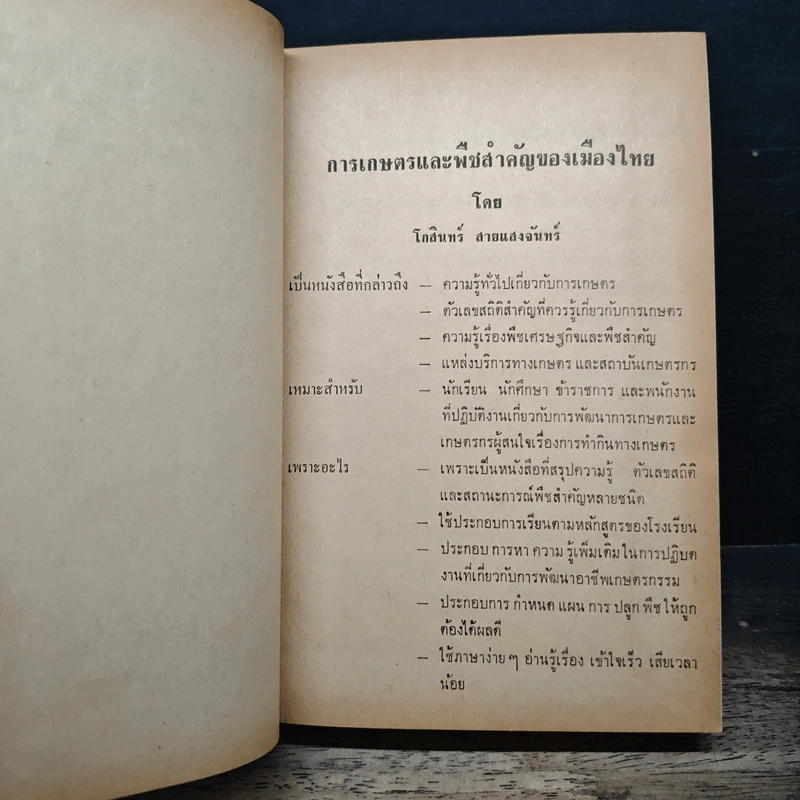 การเกษตรและพืชสำคัญของเมืองไทย
โดย
โกสินทร์ สายแสงจันทร์
เป็นหนังสือที่กล่าวถึง — ความรู้ทั่วไปเกี่ยวกับการเกษตร
— ตัวเลขสถิติสำคัญที่ควรรู้เกี่ยวกับการเกษตร
— ความรู้เรื่องพืชเศรษฐกิจและพืชสำคัญ
— แหล่งบริการทางเกษตร และสถาบันเกษตรกร
เหมาะสำหรับ — นักเรียน นักศึกษา ข้าราชการ และพนักงาน
ที่ปฏิบัติงานเกี่ยวกับการพัฒนาการเกษตรและ
เกษตรกรผู้สนใจเรื่องการทำกินทางเกษตร
เพราะอะไร — เพราะเป็นหนังสือที่สรุปความรู้ ตัวเลขสถิติ
และสถานะการณ์พืชสำคัญหลายชนิด
— ใช้ประกอบการเรียนตามหลักสูตรของโรงเรียน
— ประกอบ การหา ความ รู้เพิ่มเติม ในการปฏิบัต
งานที่เกี่ยวกับการพัฒนาอาชีพเกษตรกรรม
— ประกอบการ กำหนด แผน การ ปลูก พืช ให้ถูก
ต้องได้ผลดี
— ใช้ภาษาง่าย ๆ อ่านรู้เรื่อง เข้าใจเร็ว เสียเวลา
น้อย